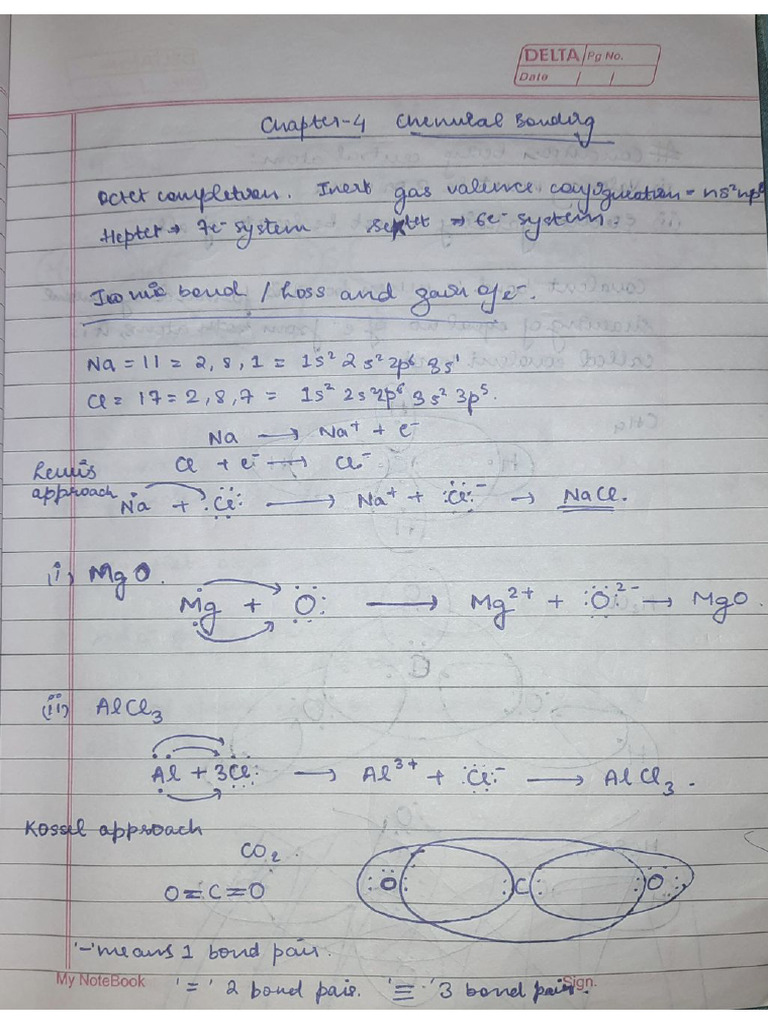 DELTA Pg No.
Date / /
Chapter-4 Chemical Bonding
Octet completion. Inert gas valence configuration = ns²np⁶
Heptet → 7e⁻ system Septet ⇒ 6e⁻ system.
Ionic bond / Loss and gain of e⁻.
Na = 11 = 2, 8, 1 = 1s² 2s² 2p⁶ 3s¹
Cl = 17 = 2, 8, 7 = 1s² 2s² 2p⁶ 3s² 3p⁵.
Na → Na⁺ + e⁻
Cl + e⁻ → Cl⁻
Lewis
approach Na + Cl → Na⁺ + Cl⁻ → NaCl.
(i) MgO.
Mg + O → Mg²⁺ + O²⁻ → MgO.
(ii) AlCl₃
Al + 3Cl → Al³⁺ + Cl⁻ → AlCl₃.
Kossel approach
CO₂
O=C=O O C O
'-' means 1 bond pair.
My NoteBook Sign.
'=' 2 bond pair. '≡' 3 bond pair.